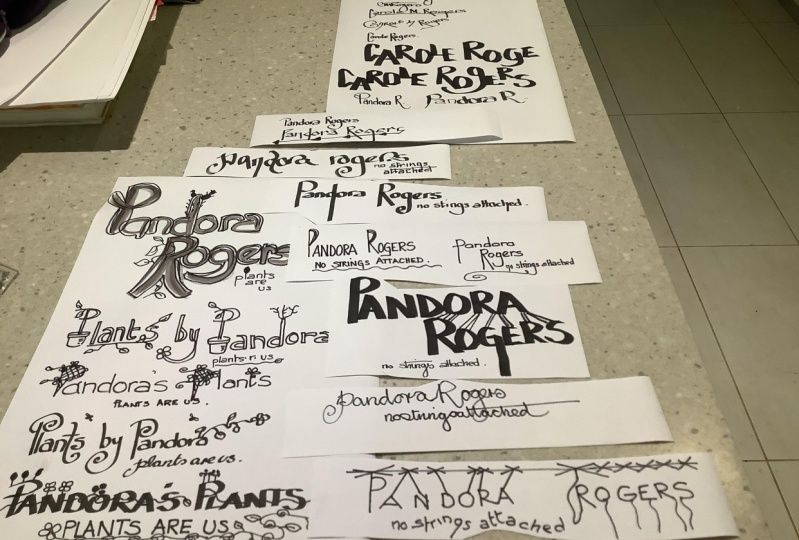 Carole M. Rogers
Carole M Rogers
Carole Rogers
CAROLE ROGE
CAROLE ROGERS
Pandora R. Pandora R.
Pandora Rogers
Pandora Rogers
Pandora rogers
no strings
attached
Pandora Rogers
no stings attached.
PANDORA ROGERS
NO STRINGS ATTACHED.
Pandora
Rogers
no strings attached
PANDORA
ROGERS
no strings attached.
Pandora Rogers
nostringsattached
PANDORA ROGERS
no strings attached
Pandora
Rogers
plants
are
us
Plants by Pandora
plants·r·us
Pandora's Plants
PLANTS ARE US.
Plants by Pandora
plants are us.
PANDORA'S PLANTS
PLANTS ARE US